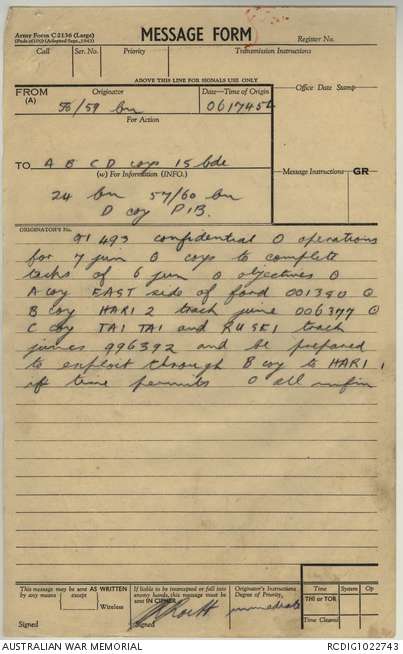 Army Form C2136 (Large)
(Pads of 100) (Adopted Sept., 1943)
MESSAGE FORM
Register No.
Call Ser. No. Priority Transmission Instructions
ABOVE THIS LINE FOR SIGNALS USE ONLY
FROM
(A)
Originator
Date—Time of Origin
Office Date Stamp
58/59 bn
061745L
For Action
TO A B C D coys 15 bde
(w) For Information (INFO.)
Message Instructions GR
24 bn 57/60 bn
D coy PIB.
ORIGINATOR'S No.
493 confidential O operations
for 7 jun O coys to complete
tasks of 6 jun O objectives O
A coy EAST side of ford 001390 O
B coy HARI 2 track junc 006377 O
C coy TAI TAI and RUSEI track
juncs 996392 and be prepared
to exploit through B coy to HARI 1
if time permits O all infm
This message may be sent AS WRITTEN
by any means except
Wireless
Signed
If liable to be intercepted or fall into
enemy hands, this message must be
sent IN CIPHER
Signed
Originator's Instructions
Degree of Priority
immediate
Time System Op
THI or TOR
Time Cleared
AUSTRALIAN WAR MEMORIAL
RCDIG1022743